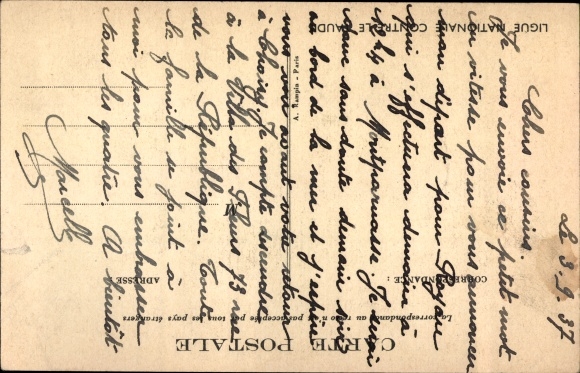 Le 3-9.37
Chers cousins.
Je vous envoie ce petit mot
en vitesse pour vous annoncer
mon départ pour Royan
qui s'effectuera demain à
à Montparnasse. Je serai
sans doute demain soir
au bord de la mer et j'espère
vous voir avant votre retour
à Choisy. Je compte descendre
à la Villa des Fleurs 73 av
de la République. Toute
la famille se joint à
moi pour vous embrasser
tous les quatre. A bientôt
Marcelle
LIGUE NATIONALE CONTRE LE TAUDIS
A. Rampin - Paris
CARTE POSTALE
La correspondance au recto n'est pas acceptée par tous les pays étrangers
CORRESPONDANCE :
ADRESSE
M